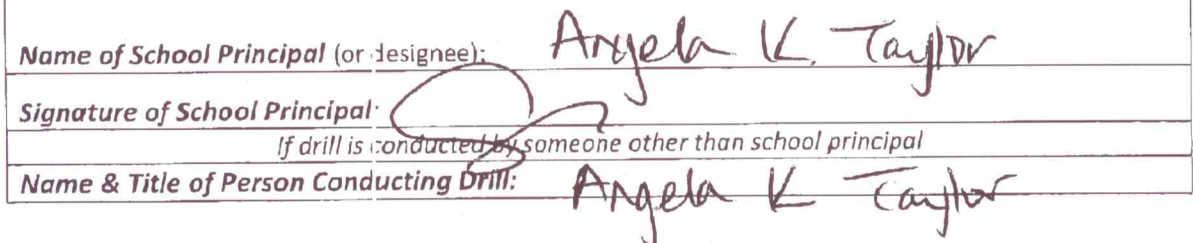 Name of School Principal (or designee): Angela K. Taylor
Signature of School Principal:
If drill is conducted by someone other than school principal
Name & Title of Person Conducting Drill: Angela K Taylor